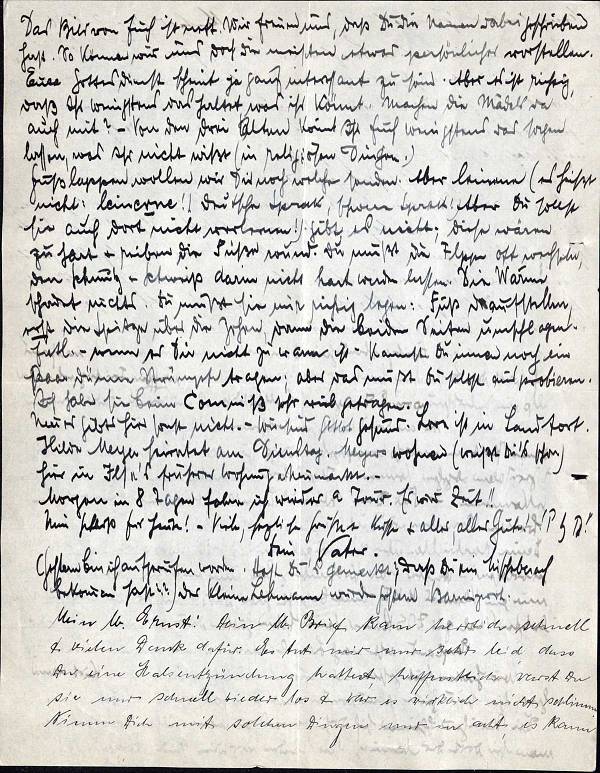 Das Bild von Euch ist nett. Wir freuen uns, daß Du die Namen dabei geschrieben
hast. So können wir uns doch die meisten etwas persönlicher vorstellen.
Euer Gottesdienst scheint ja ganz interessant zu sein. Aber es ist richtig,
daß Ihr wenigstens das haltet was ihr könnt. Machen die Mädels da
auch mit? - Von den drei Alten könnt Ihr Euch wenigstens das sagen
lassen, was Ihr nicht wißt (in religiösen Dingen.)
Fußlappen wollen wir Dir noch welche senden. Aber leinene (es heißt
nicht: leinerne! deutsche Sprak, schwere Sprak! Aber Du sollst
sie auch dort nicht verlernen!) gibt es nicht. Diese wären
zu hart + rieben die Füße wund. Du mußt die Lappen oft wechseln,
den Schmutz + Schweiß darin nicht hart werden lassen. Die Wärme
schadet nichts. Du mußt sie nur richtig legen: Fuß draufstellen,
erst die Spitze über die Zehen, dann die beiden Seiten umschlagen.
Evtl. - wenn es Dir nicht zu warm ist - kannst Du innen noch ein
paar dünne Strümpfe tragen, aber das mußt Du selbst ausprobieren.
Ich habe sie beim Commiß sehr viel getragen.
Neues gibt's hier sonst nicht. - Wir sind gottlob gesund. Lore ist in Landfort.
Hilde Meyer heiratet am Dienstag. Meyers wohnen (weißt Du's schon)
hier in Ilse's früherer Wohnung am Neumarkt. -
Morgen in 8 Tagen fahre ich wieder a Tour. Es wird Zeit!!
Nun Schluß für heute! - Viele, herzliche Grüße + Küsse + alles, alles Gute!
Dein Vater.
(Gestern bin ich aufgerufen worden. Hast Du's gemerkt, daß Du ein
bekommen hast?) Der kleine Lehmann wurde gestern Barmizwoh.
Mein lb. Ernst! Dein lb. Brief kam herrlich schnell
+ vielen Dank dafür. Es tut mir nur sehr leid dass
Du eine Halsentzündung hattest, hoffentlich warst Du
sie nur schnell wieder los + war es wirklich nicht schlimm.
Nimm Dich mit solchen Dingen nur in acht es kann